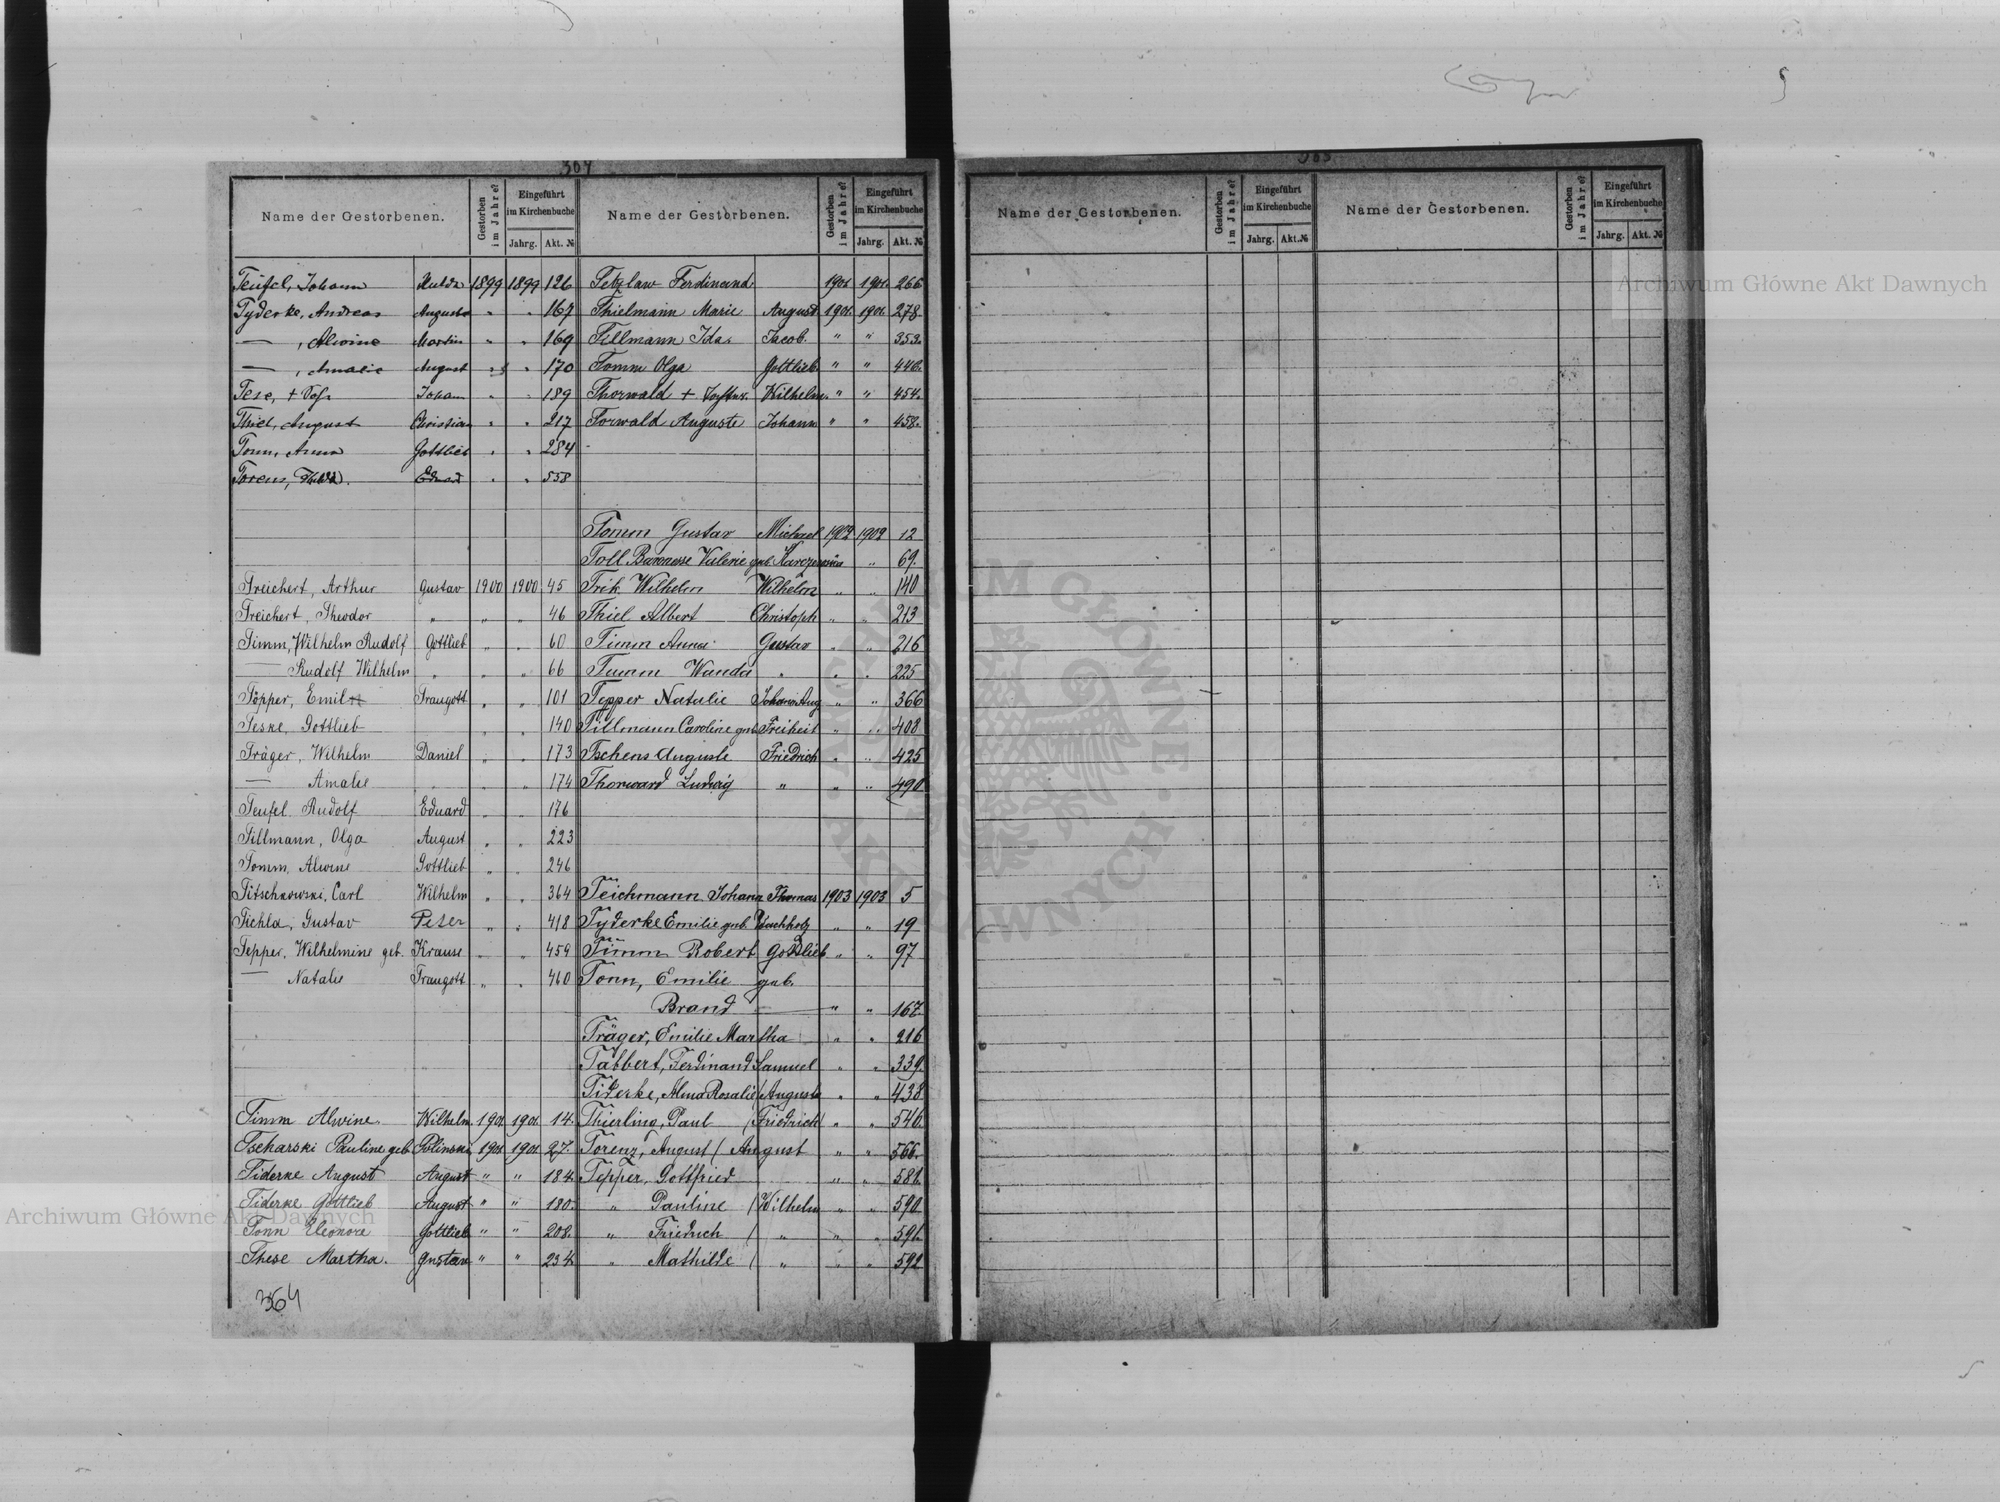 364
Name der Gestorbenen.
Gestorben im Jahre?
Eingeführt im Kirchenbuche
Jahrg.
Akt. №
Name der Gestorbenen.
Gestorben im Jahre?
Eingeführt im Kirchenbuche
Jahrg.
Akt. №
Teufel, Johann 1899 1899 126
Tyderke, Andreas August " " 167
— , Alwine Martin " " 169
— , Amalie August " " 170
Tese, + Johann " " 189
Thiel, August Christian " " 217
Tonn, Anna Gottlieb " " 284
Eduard " " 558
Treichert, Arthur Gustav 1900 1900 45
Treichert, Theodor " " " 46
Timm, Wilhelm Rudolf Gottlieb " " 60
— Rudolf Wilhelm " " " 66
Töpper, Emil Traugott " " 101
Teske, Gottlieb " " 140
Träger, Wilhelm Daniel " " 173
— Amalie " " " 174
Teufel, Rudolf Eduard " " 176
Tillmann, Olga August " " 223
Tomm, Alwine Gottlieb " " 246
Titschkowski, Carl Wilhelm " " 364
Tichla, Gustav Peter " " 418
Tepper, Wilhelmine geb. Krause " " 459
— Natalie Traugott " " 460
Timm Alwine. Wilhelm 1901. 1901. 14.
Pauline geb. 1901 1901 27.
Tiderke August August " " 184.
Tiderke Gottlieb August " " 180.
Tonn Eleonore Gottlieb " " 208.
These Martha. Gustav " " 234.
364
Tetzlaw Ferdinand 1901. 1901. 266
Thielmann Marie August 1901. 1901. 278.
Tillmann Ida. Jacob. " " 353.
Tomm Olga Gottlieb " " 446.
Thorwald + Wilhelm. " " 454.
Torwald Auguste Johann " " 458.
Tomm Gustav Michael 1902 1902 12
Toll Baronesse Valerie geb. " 69.
Trik Wilhelm Wilhelm " " 140
Thiel Albert Christoph " " 213
Timm Anna Gustav " " 216
Tumm Wanda " " " 225
Tepper Natalie Johann Aug. " " 366
Tillmann Caroline geb. Freiheit " " 408
Tschens Auguste Friedrich " " 425
Thorward Ludwig " " " 490
Teichmann Johann Thomas 1903 1903 5
Tyderke Emilie geb. Buchholz " " 19
Timm Robert Gottlieb " " 97
Tonn, Emilie geb.
Brand — " " 167.
Träger, Emilie Martha " " 216
Tabbert, Ferdinand Samuel " " 339.
Tiderke, Alma Rosalie / August " " 438
Thierling, Paul / Friedrich / " " 546.
Torenz, August / August " " 566.
Tepper, Gottfried " " 581.
" Pauline / Wilhelm " " 590.
" Friedrich / " " " 591.
" Mathilde / " " " 592
365
Name der Gestorbenen.
Gestorben im Jahre?
Eingeführt im Kirchenbuche
Jahrg.
Akt.№
Name der Gestorbenen.
Gestorben im Jahre?
Eingeführt im Kirchenbuche
Jahrg.
Akt. №
Archiwum Główne Akt Dawnych
Archiwum Główne Akt Dawnych
ARCHIWUM GŁÓWNE · AKT DAWNYCH ·